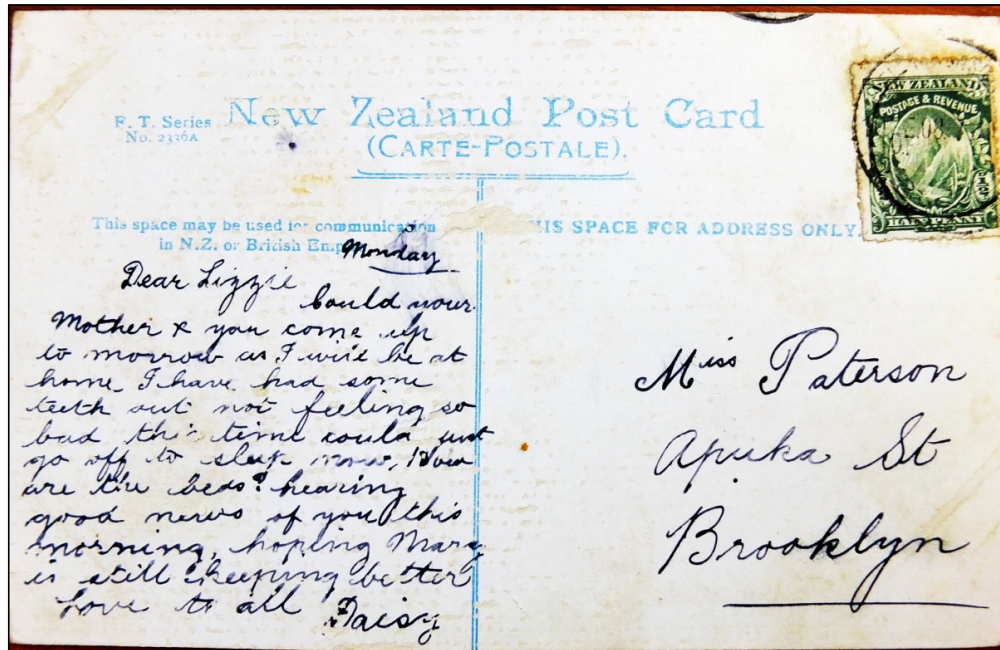 F. T. Series
No. 2326A
New Zealand Post Card
(CARTE-POSTALE).
NEW ZEALAND
POSTAGE & REVENUE
1/2
HALF PENNY
This space may be used for communication
in N.Z. or British Emp
THIS SPACE FOR ADDRESS ONLY.
Monday
Dear Lizzie
Could your
Mother & you come up
to morrow as I will be at
home I have had some
teeth out not feeling so
bad this time could just
go off to sleep now, How
are the beds? hearing
good news of you this
morning, hoping Mary
is still keeping better
Love to all Daisy
Miss Paterson
Apuka St
Brooklyn